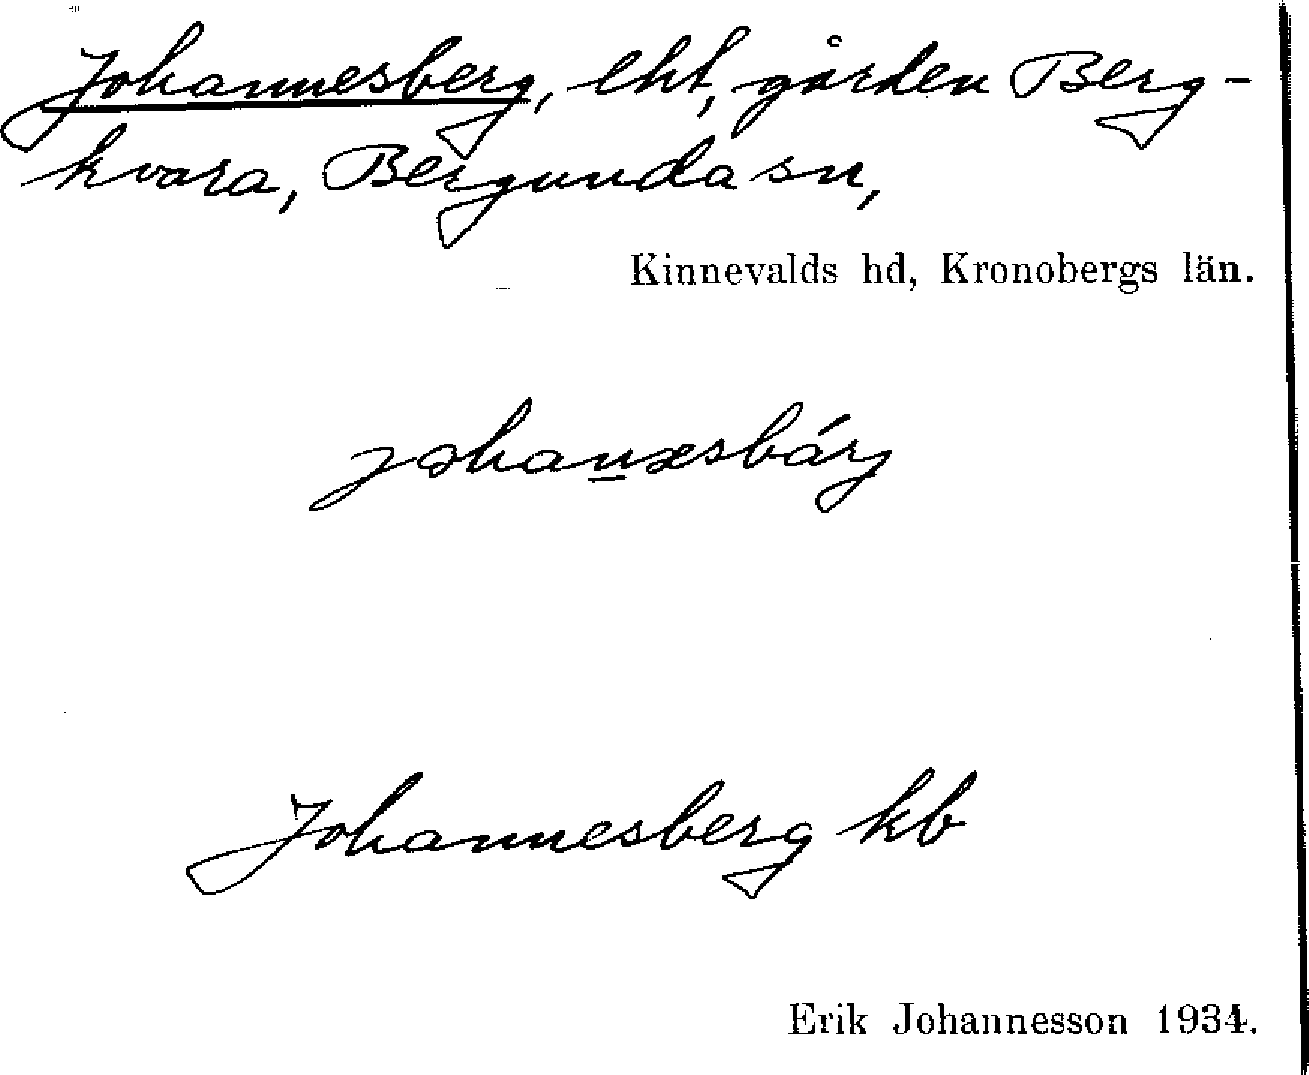 Johannesberg, lht, gården Berg-
kvara, Bergunda sn,
Kinnevalds hd, Kronobergs län.
johanæsbárj
Johannesberg kb
Erik Johannesson 1934.